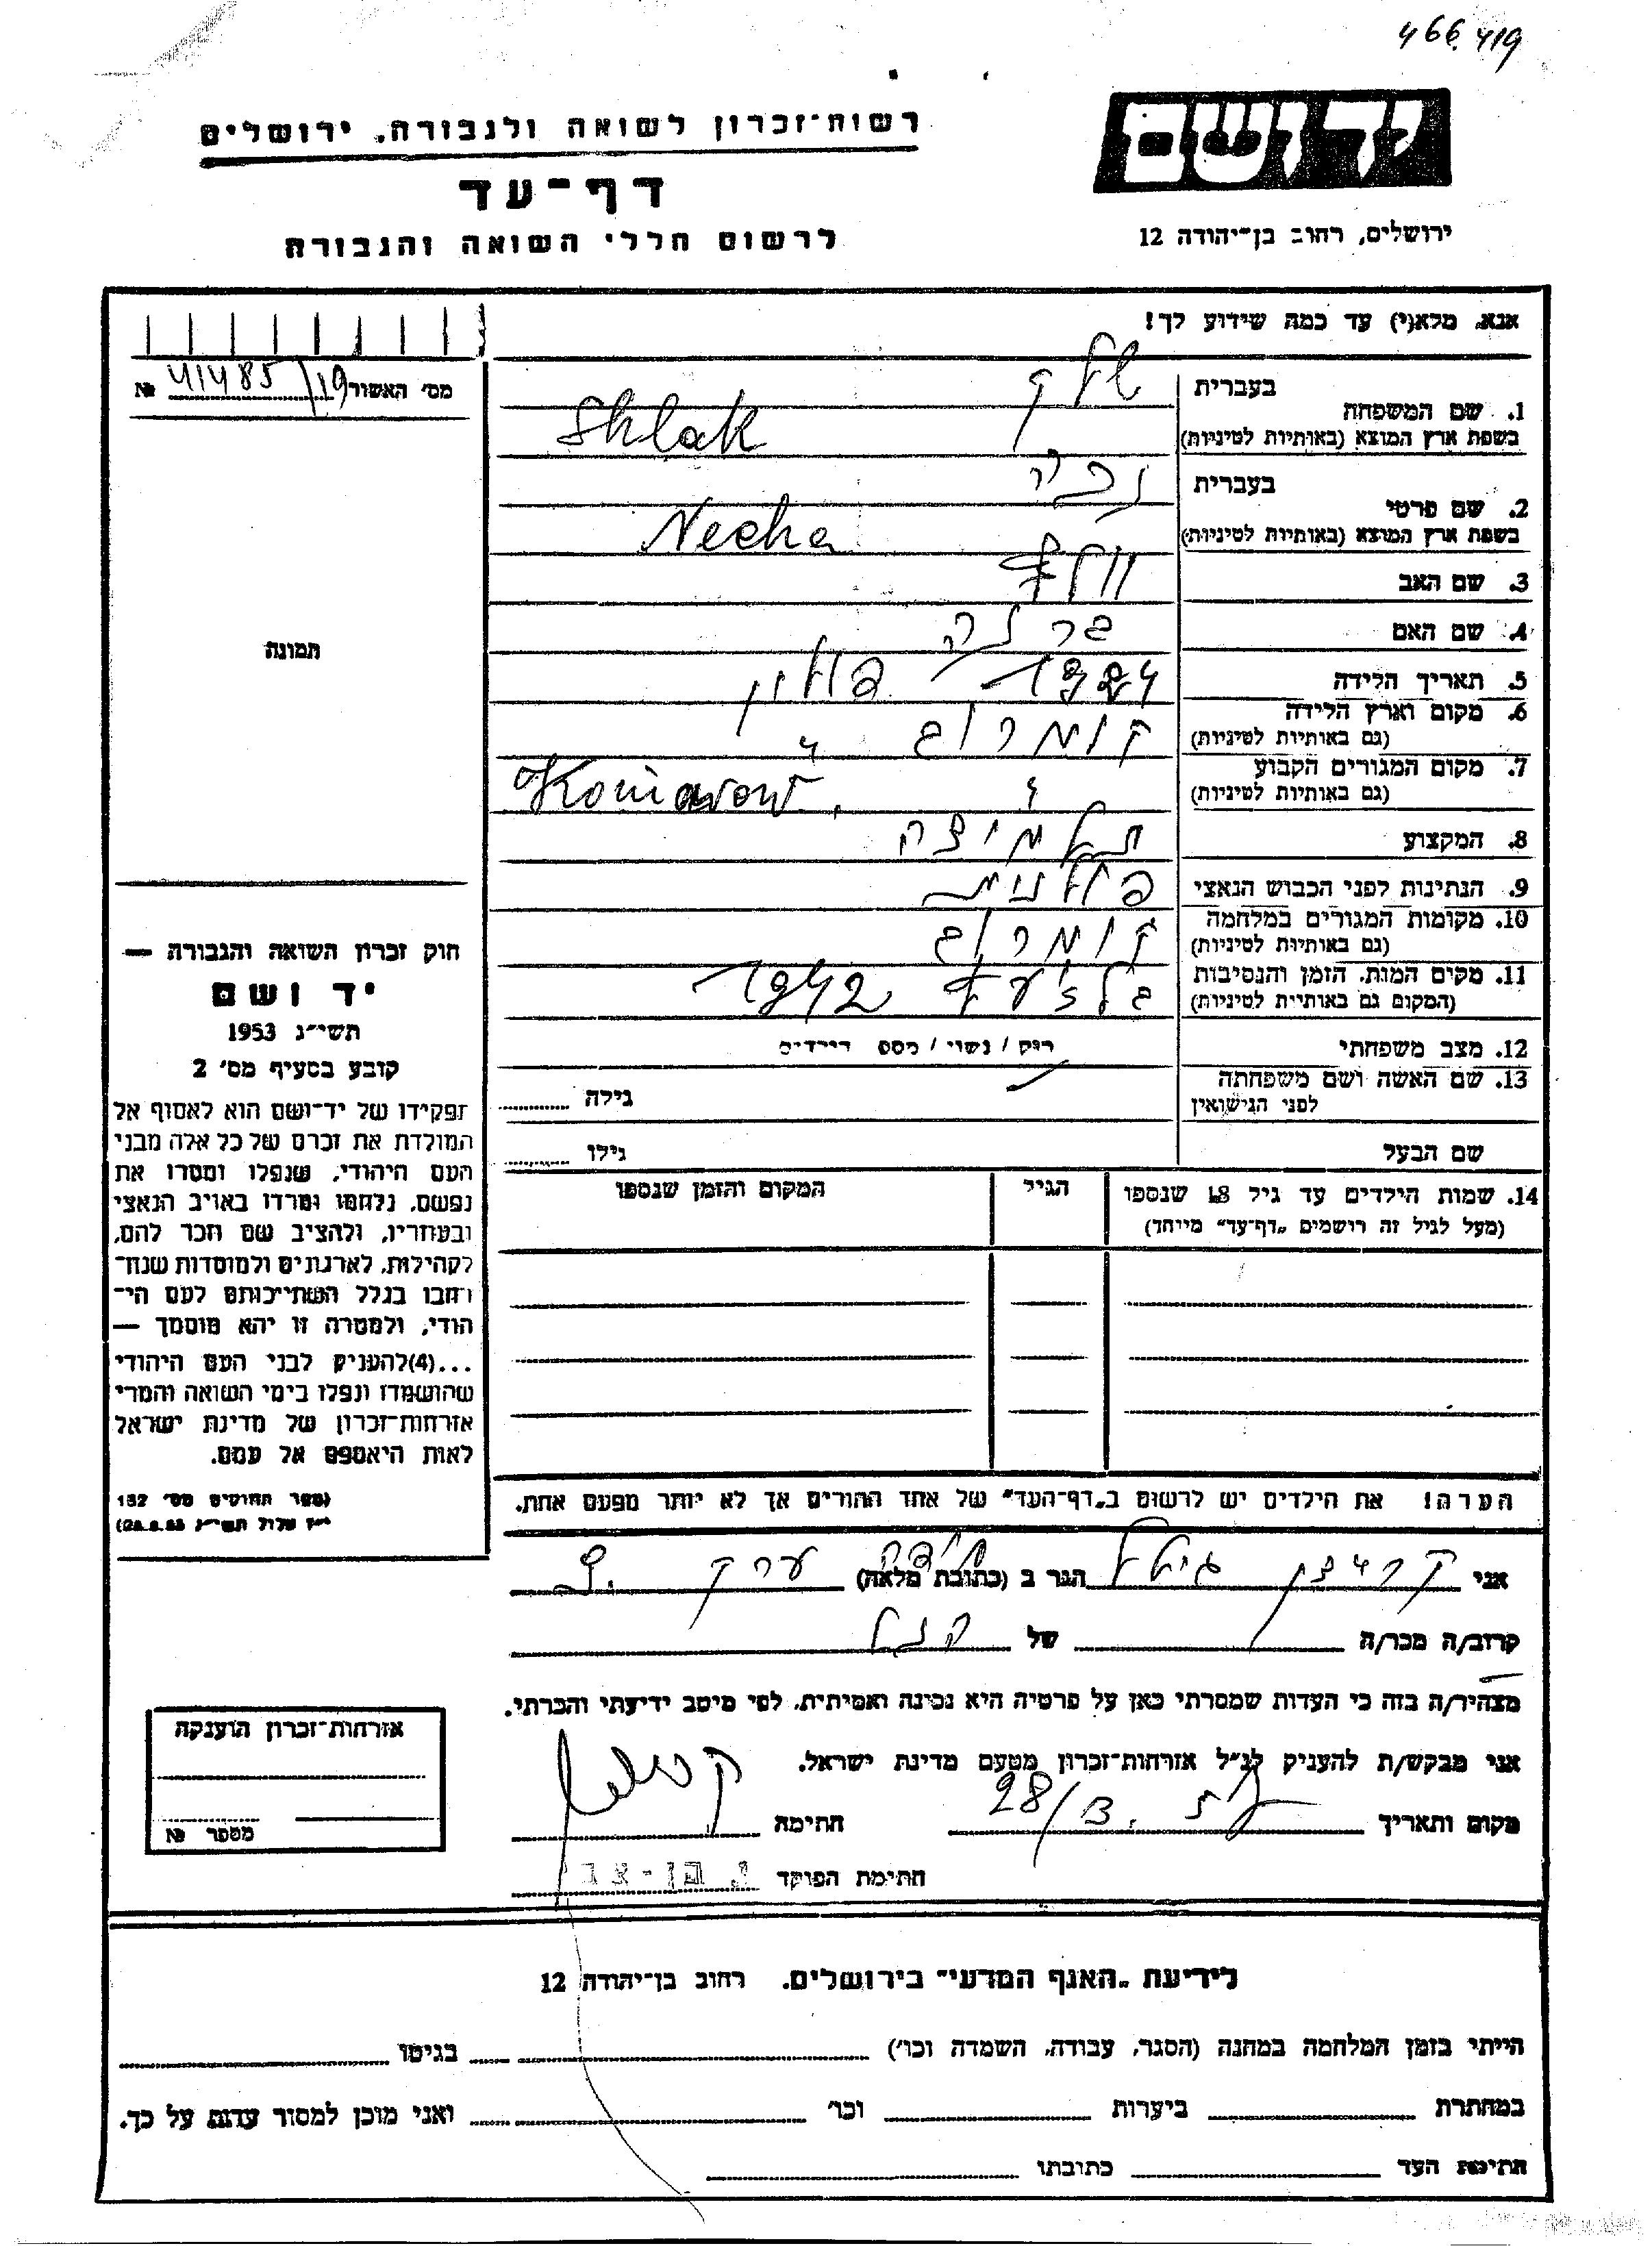 466.419
יד ושם
ירושלים, רחוב בן־יהודה 12
רשות־זכרון לשואה ולגבורה, ירושלים
דף־עד
לרשום חללי השואה והגבורה
אנא, מלא(י) עד כמה שידוע לך!
מס׳ האשור 41485/19 №
תמונה
1. שם המשפחה
בעברית שלק
בשפת ארץ המוצא (באותיות לטיניות) Shlak
2. שם פרטי
בעברית נכה
בשפת ארץ המוצא (באותיות לטיניות) Necha
3. שם האב וולף
4. שם האם
5. תאריך הלידה 1924 פולין
6. מקום וארץ הלידה קומרוב
(גם באותיות לטיניות)
7. מקום המגורים הקבוע Komarow
(גם באותיות לטיניות)
8. המקצוע תלמידה
9. הנתינות לפני הכבוש הנאצי פולנית
10. מקומות המגורים במלחמה קומרוב
(גם באותיות לטיניות)
11. מקום המות, הזמן והנסיבות בלזעץ 1942
(המקום גם באותיות לטיניות)
12. מצב משפחתי רוק / נשוי / מספר הילדים
13. שם האשה ושם משפחתה
לפני הנישואין
גילה
שם הבעל גילו
14. שמות הילדים עד גיל 18 שנספו
(מעל לגיל זה רושמים „דף־עד״ מיוחד)
הגיל
המקום והזמן שנספו
חוק זכרון השואה והגבורה —
יד ושם
תשי״ג 1953
קובע בסעיף מס׳ 2
תפקידו של יד־ושם הוא לאסוף אל
המולדת את זכרם של כל אלה מבני
העם היהודי, שנפלו ומסרו את
נפשם, נלחמו ומרדו באויב הנאצי
ובעוזריו, ולהציב שם וזכר להם,
לקהילות, לארגונים ולמוסדות שנח־
רבו בגלל השתייכותם לעם הי־
הודי, ולמטרה זו יהא מוסמך —
...(4)להעניק לבני העם היהודי
שהושמדו ונפלו בימי השואה והמרי
אזרחות־זכרון של מדינת ישראל
לאות היאספם אל עמם.
(ספר החוקים מס׳ 132
י״ז אלול תשי״ג 28.8.53)
הערה! את הילדים יש לרשום ב„דף־העד״ של אחד ההורים אך לא יותר מפעם אחת.
אני קרצמן הגר ב (כתובת מלאה)
קרוב/ה מכר/ה של
מצהיר/ה בזה כי העדות שמסרתי כאן על פרטיה היא נכונה ואמיתית, לפי מיטב ידיעתי והכרתי.
אני מבקש/ת להעניק לנ״ל אזרחות־זכרון מטעם מדינת ישראל.
מקום ותאריך 28/3 חתימה
חתימת הפוקד
אזרחות־זכרון הוענקה
מספר №
לידיעת „האגף המדעי״ בירושלים, רחוב בן־יהודה 12
הייתי בזמן המלחמה במחנה (הסגר, עבודה, השמדה וכו׳) בגיטו
במחתרת ביערות וכו׳ ואני מוכן למסור עדות על כך.
חתימת העד כתובתו